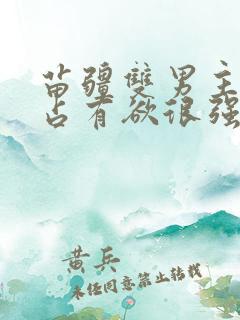 苗疆雙男主
占有欲很强
黄兵
未经同意禁止转载